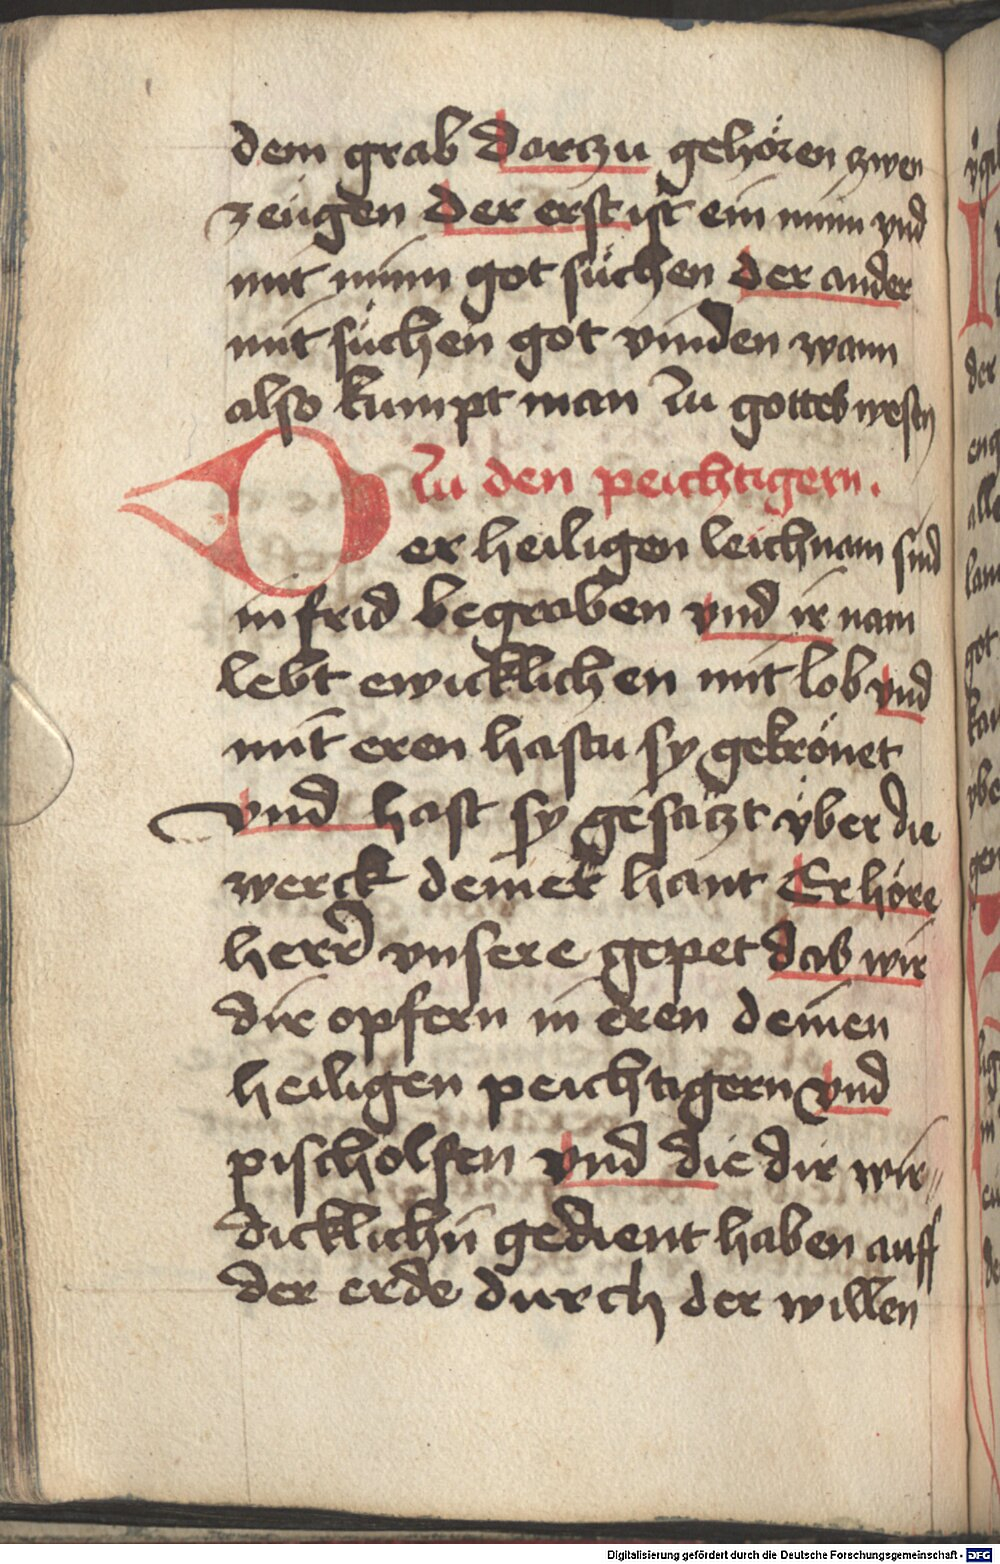 dem grab Darczu gehören zwen
zeugen Der erst ist ein minn vnd
mit minn got süchen der ander
mit süchen got vinden wann
also kumpt man zu gottes wesen
Zu den peichtigern.
Der heiligen leichnam sind
in frid begraben vnd ir nam
lebt ewicklichen mit lob vnd
mit eren hastu sy gekrönet
vnd hast sy gesatzt über die
werck deiner hant Erhöre
herr vnsere gepet das wir
dir opfern in eren deinen
heiligen peichtigern vnd
pischolfen vnd die dir wir⸗
dicklichn gedient haben auff
der erde durch der willen
Digitalisierung gefördert durch die Deutsche Forschungsgemeinschaft - DFG